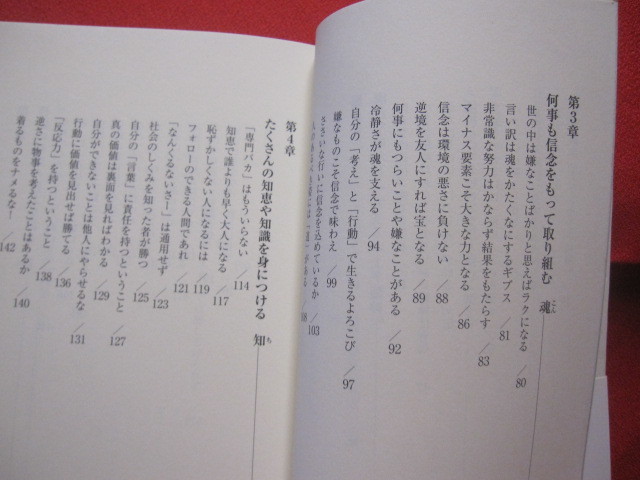 第3章
何事も信念をもって取り組む 魂 こん
世の中は嫌なことばかりと思えばラクになる /80
言い訳は魂をかたくなにするギプス /81
非常識な努力はかならず結果をもたらす /83
マイナス要素こそ大きな力となる /86
信念は環境の悪さに負けない /88
逆境を友人にすれば宝となる /89
何事にもつらいことや嫌なことがある /92
冷静さが魂を支える /94
自分の「考え」と「行動」で生きるよろこび /97
嫌なものこそ信念で味わえ /99
ささいな行いに信念を込めているか /103
第4章
たくさんの知恵や知識を身につける 知 ち
「専門バカ」はもういらない /114
知恵で誰よりも早く大人になる /117
恥ずかしくない人になるには /119
フォローのできる人間であれ /121
「なんくるないさー」は通用せず /123
社会のしくみを知った者が勝つ /125
自分の「言葉」に責任を持つということ /127
真の価値は裏面を見ればわかる /129
自分ができないことは他人にやらせるな /131
行動に価値を見出せば勝てる /136
「反応力」を持つということ /138
逆さに物事を考えたことはあるか /140
着るものをナメるなー /142